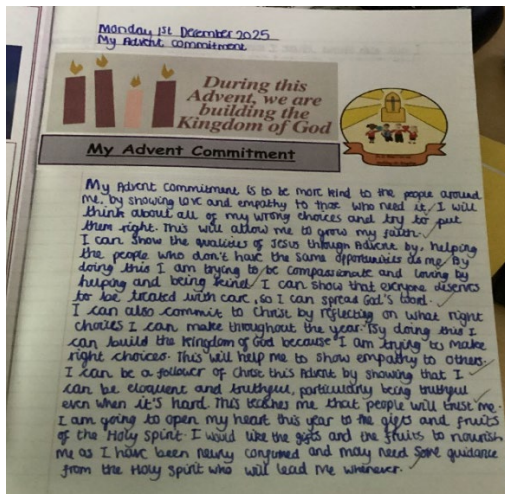 Monday 1st December 2025
My Advent commitment
During this
Advent, we are
building the
Kingdom of God
My Advent Commitment
My Advent Commitment is to be more kind to the people around
me, by showing love and empathy to those who need it. I will
think about all of my wrong choices and try to put
them right. This will allow me to grow my faith.
I can show the qualities of Jesus through Advent by, helping
the people who don't have the same opportunities as me. By
doing this I am trying to be compassionate and loving by
helping and being kind. I can show that everyone deserves
to be treated with care, so I can spread God's
I can also commit to Christ by reflecting on what right
choices I can make throughout the year. By doing this I
can build the Kingdom of God because I am trying to make
right choices. This will help me to show empathy to others.
I can be a follower of Christ this Advent by showing that I
can be eloquent and truthful, particularly being truthful
even when it's hard. This teaches me that people will trust me.
I am going to open my heart this year to the gifts and fruits
of the Holy Spirit. I would like the gifts and the fruits to nourish
me as I have been newly confirmed and may need some guidance
from the Holy Spirit who will lead me whenever.